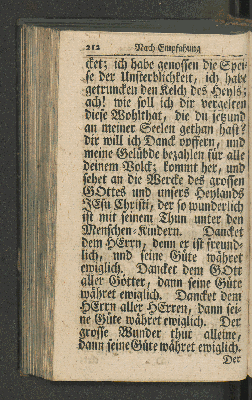 212 Nach Empfahung
cket; ich habe genossen die Spei-
se der Unsterblichkeit, ich hab
getruncken den Kelch des Heyls;
ach! wie soll ich dir vergelten
diese Wohlthat, die du jetzund
an meiner Seelen gethan hast?
dir will ich Danck opffern, und
meine Gelübde bezahlen für alle
deinem Volck; kommt her, und
sehet an die Wercke des grossen
GOttes und unsers Heylands
JEsu Christi, der so wunderlich
ist mit seinem Thun unter den
Menschen-Kindern. Dancket
dem HErrn, denn er ist freund-
lich, und seine Güte währet
ewiglich. Dancket dem GOtt
aller Götter, dann seine Güte
währet ewiglich. Dancket dem
HErrn aller HErren, dann sei-
ne Güte währet ewiglich. Der
grosse Wunder thut alleine,
dann seine Güte währet ewiglich.
Der